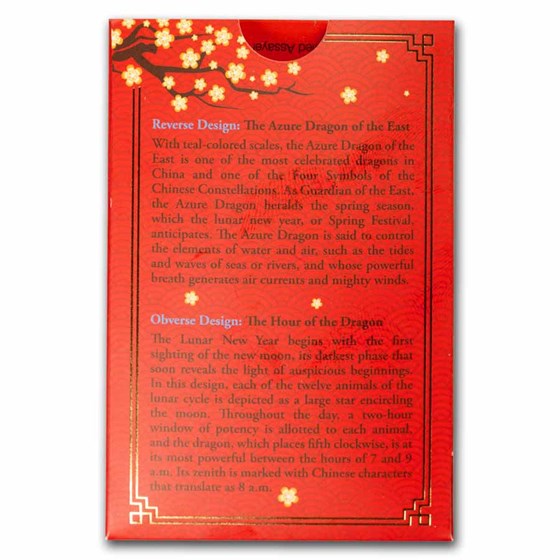 ed Assaye
Reverse Design: The Azure Dragon of the East
With teal-colored scales, the Azure Dragon of the
East is one of the most celebrated dragons in
China and one of the Four Symbols of the
Chinese Constellations. As Guardian of the East,
the Azure Dragon heralds the spring season,
which the lunar new year, or Spring Festival,
anticipates. The Azure Dragon is said to control
the elements of water and air, such as the tides
and waves of seas or rivers, and whose powerful
breath generates air currents and mighty winds.
Obverse Design: The Hour of the Dragon
The Lunar New Year begins with the first
sighting of the new moon, its darkest phase that
soon reveals the light of auspicious beginnings.
In this design, each of the twelve animals of the
lunar cycle is depicted as a large star encircling
the moon. Throughout the day, a two-hour
window of potency is allotted to each animal,
and the dragon, which places fifth clockwise, is at
its most powerful between the hours of 7 and 9
a.m. Its zenith is marked with Chinese characters
that translate as 8 a.m.